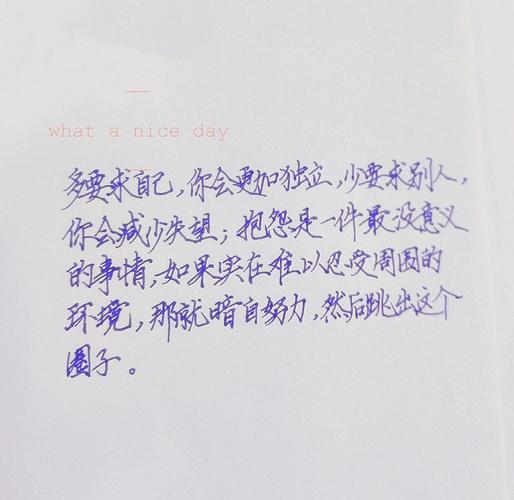 what a nice day
多要求自己，你会更加独立，少要求别人，
你会减少失望；抱怨是一件最没意义
的事情，如果实在难以忍受周围的
环境，那就暗自努力，然后跳出这个
圈子。